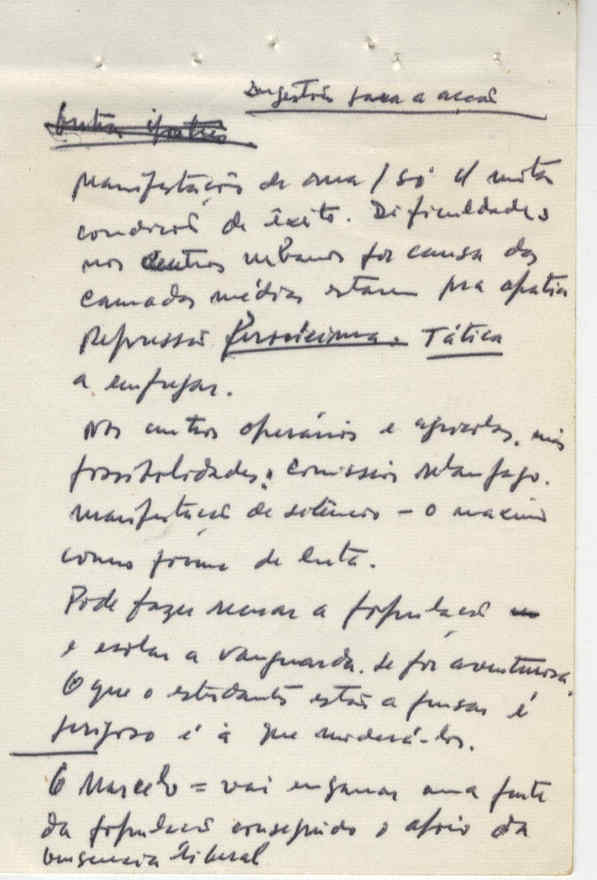 Sugestões para a acção
Manifestação de rua / só c/ muitas
condições de êxito. Dificuldades
nos centros urbanos por causa das
camadas médias estarem pra apatia
Repressão ferocíssima. Tática
a empregar.
Nos centros operários e agrícolas, mais
possibilidades; comissões relampago.
manifestação de silêncio – o maximo
como forma de luta.
Pode fazer recuar a população
e isolar a vanguarda. se for aventureirosa.
O que o estudantes estão a pensar é
perigoso é à que moderá-los.
O Marcelo = vai enganar uma parte
da população conseguindo o apoio da
burguesia liberal